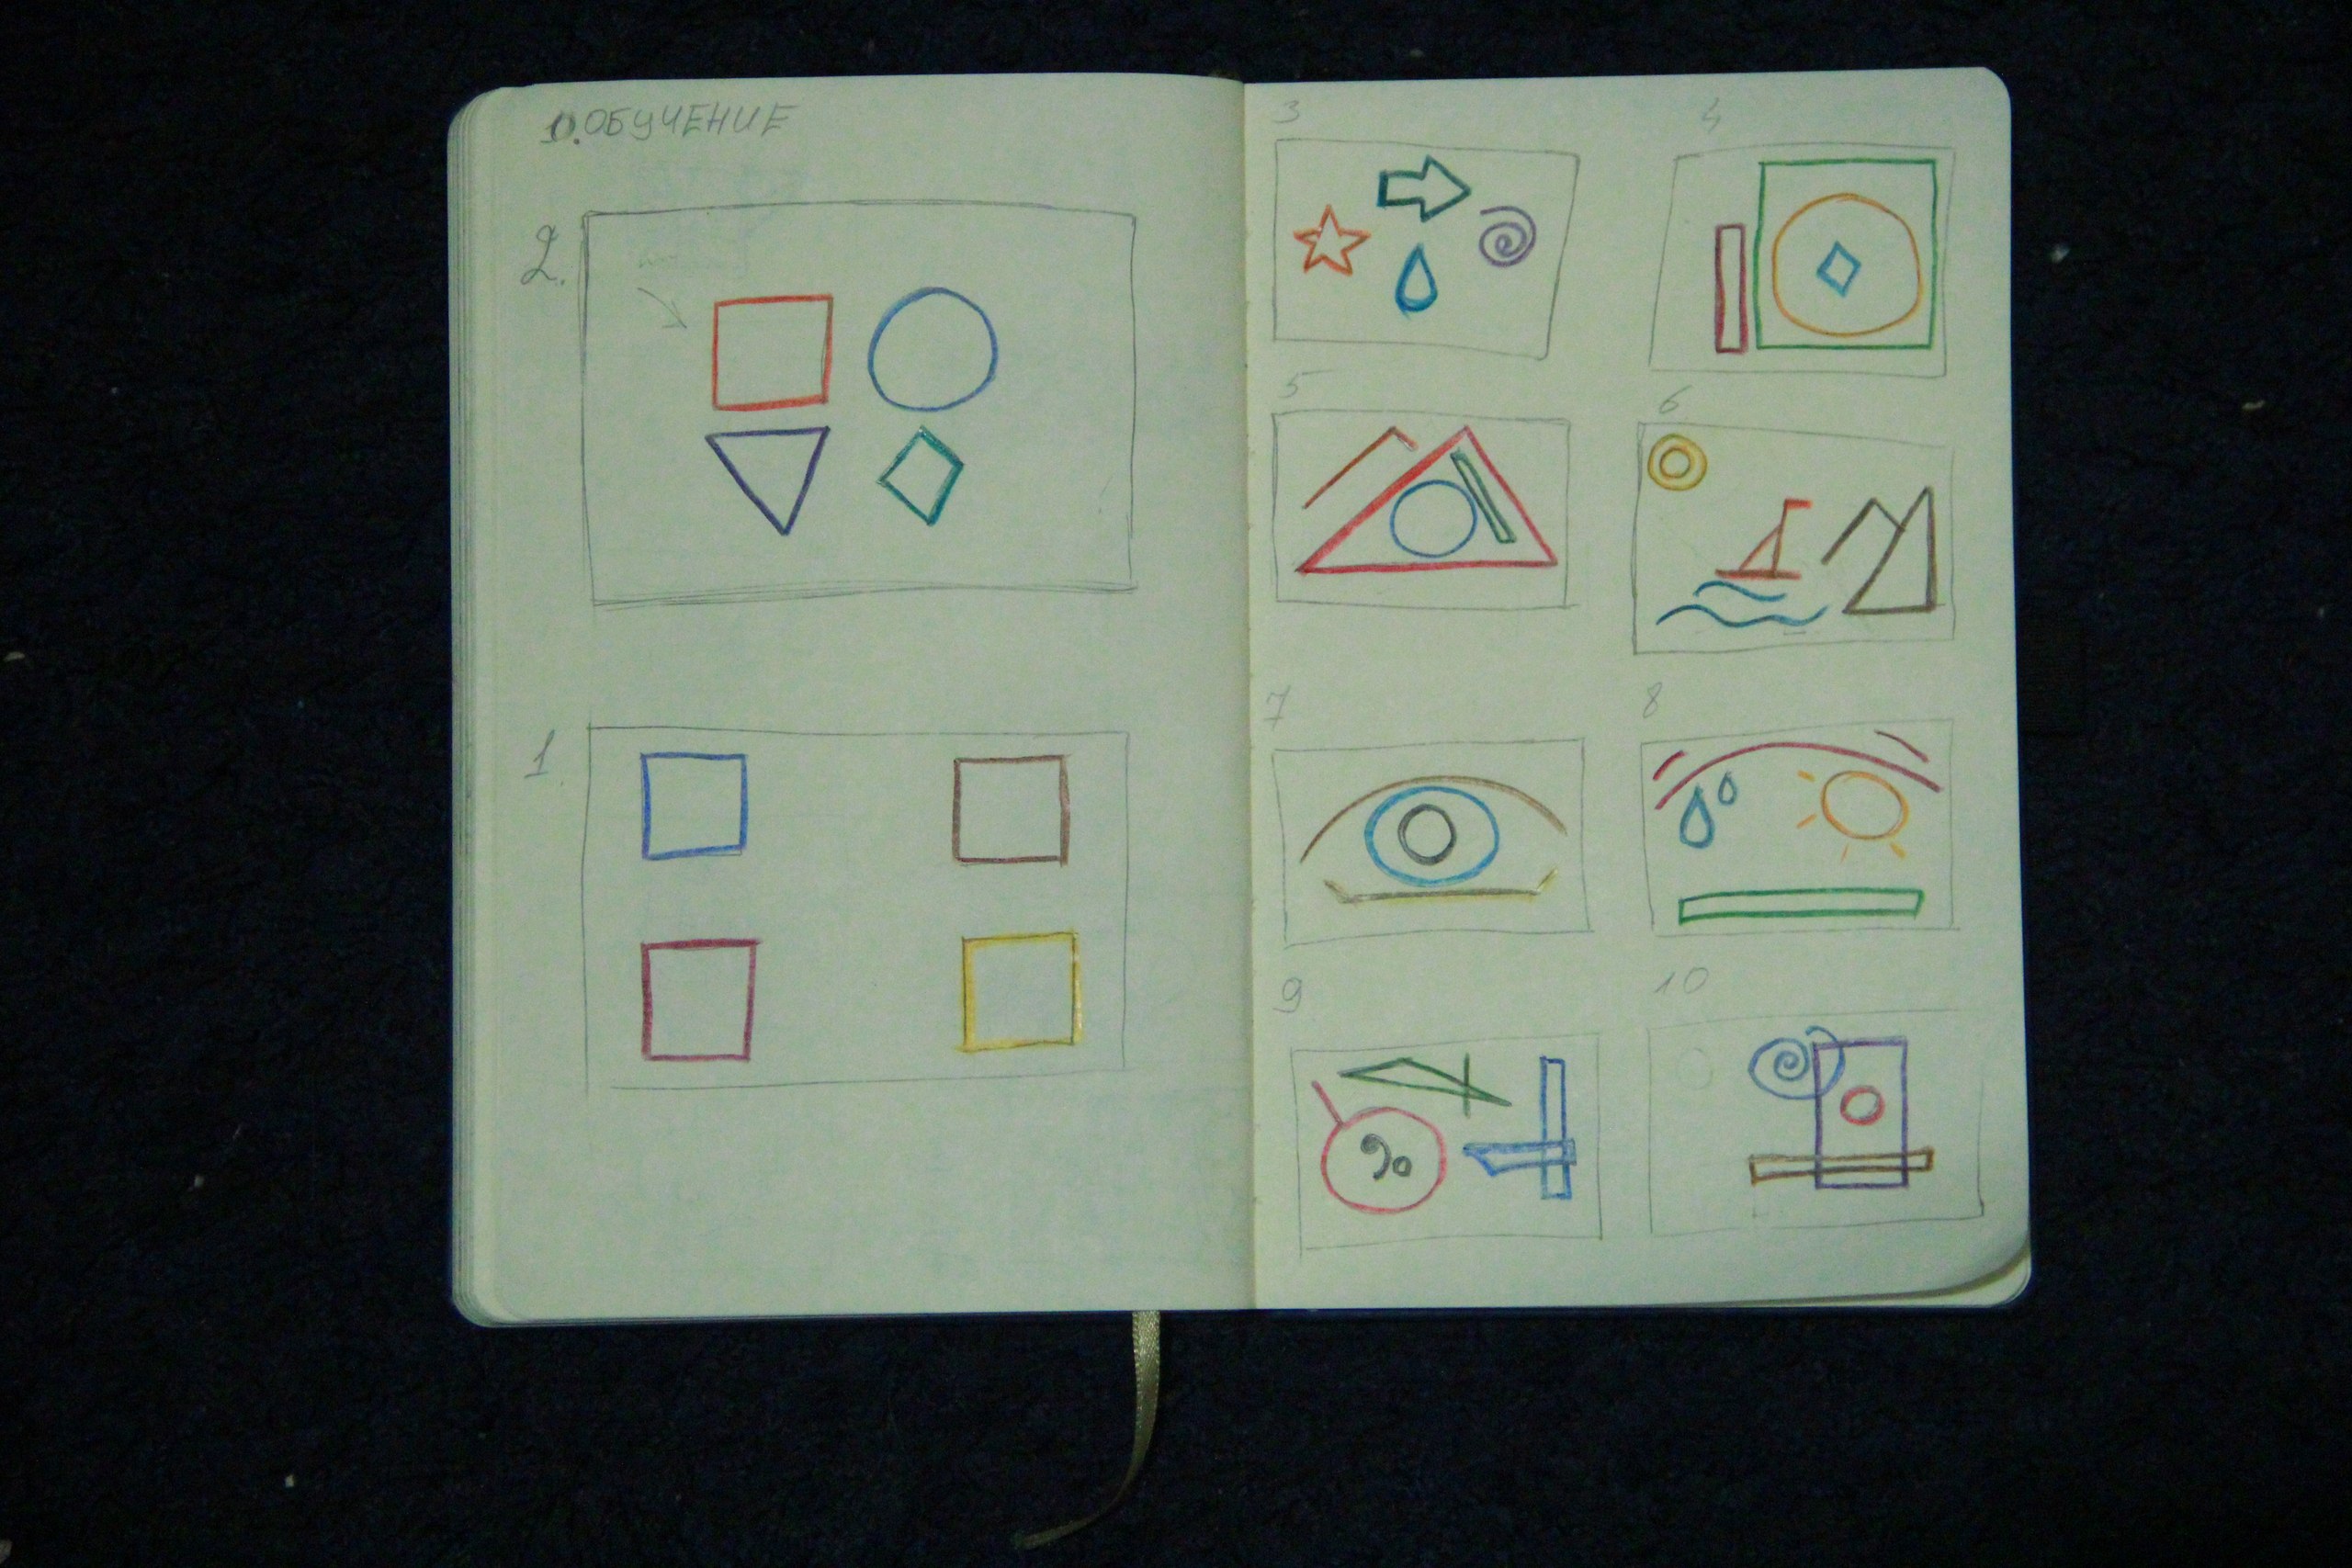 0. ОБУЧЕНИЕ
2.
1.
3
4
5
6
7
8
9
10